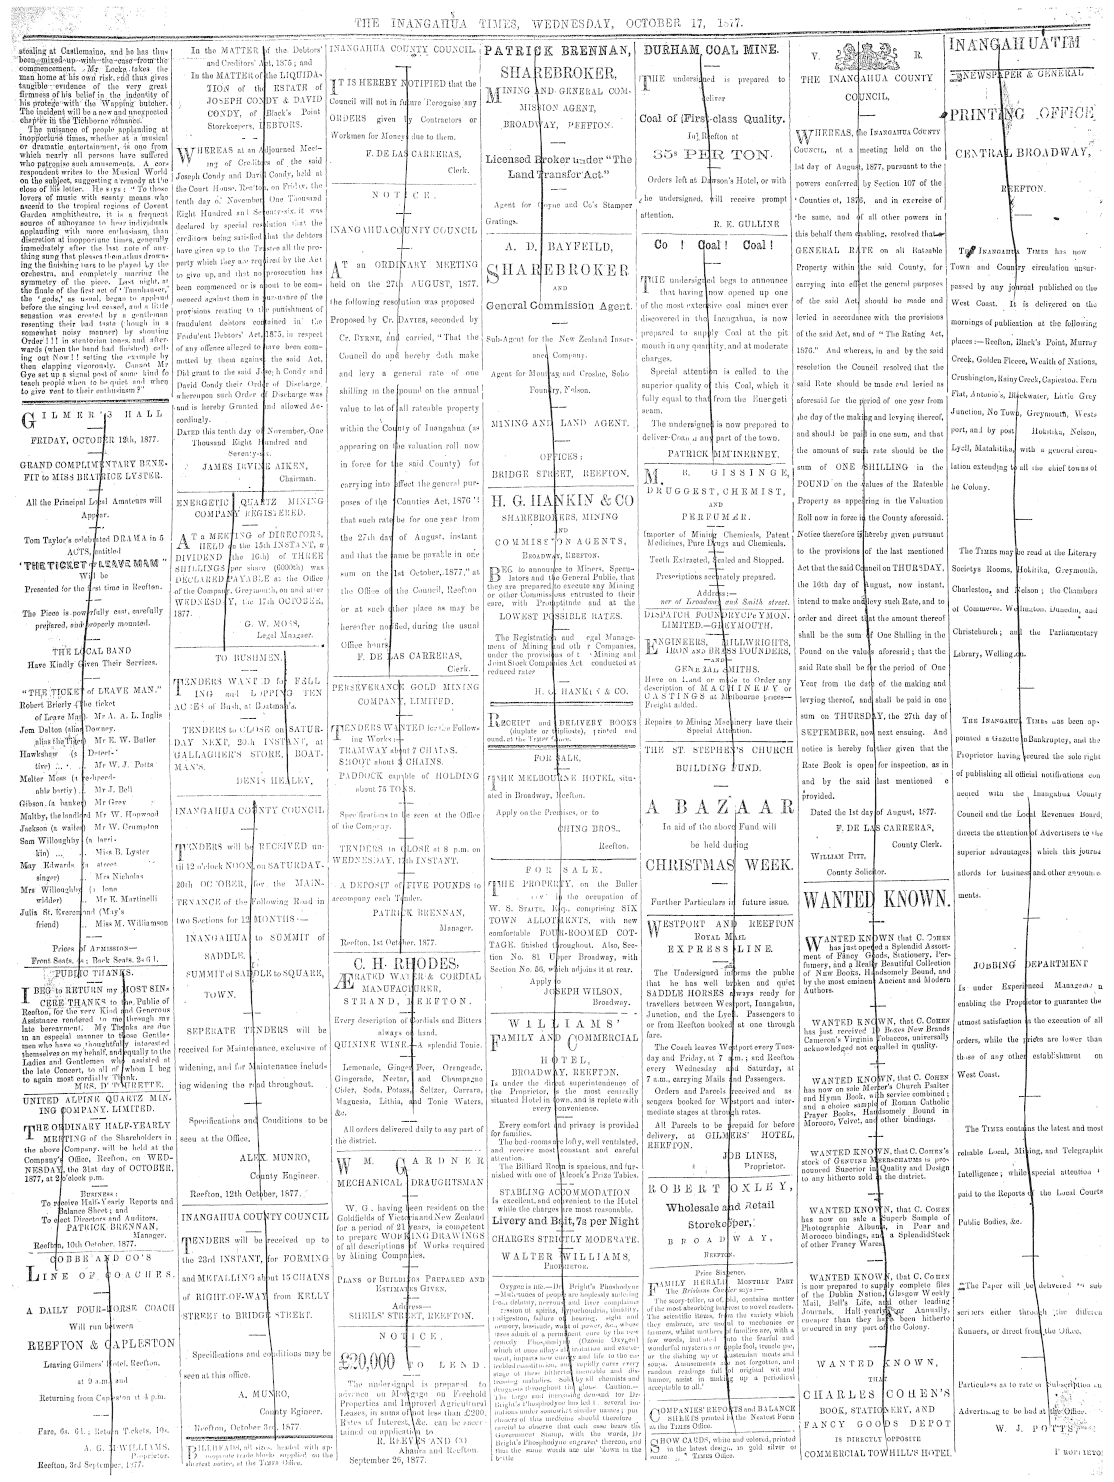 THE INANGAHUA TIMES, WEDNESDAY, OCTOBER 17, 1877.
stealing at Castlemaine, and he has thus
been mixed up with the case from the
commencement. Mr Locke takes the
man home at his own risk, and thus gives
tangible evidence of the very great
firmness of his belief in the indentity of
his protege with the Wapping butcher.
The incident will be a new and unexpected
chapter in the Tichborne romance.
The nuisance of people applauding at
inopportune times, whether at a musical
or dramatic entertainment, is one from
which nearly all persons have suffered
who patronise such amusements. A cor-
respondent writes to the Musical World
on the subject, suggesting a remedy at the
close of his letter. He says: "To those
lovers of music with scanty means who
ascend to the tropical regions of Covent
Garden amphitheatre, it is a frequent
source of annoyance to hear individuals
applauding with more enthusiasm than
discretion at inopportune times, generally
immediately after the last note of any-
thing sung that pleases them, thus drown-
ing the finishing bars to be played by the
orchestra, and completely marring the
symmetry of the piece. Last night, at
the finale of the first act of 'Tannhauser,'
the 'gods,' as usual, began to applaud
before the singing had ceased, and a little
sensation was created by a gentleman
resenting their bad taste (though in a
somewhat noisy manner) by shouting
Order!!! in stentorian tones, and after-
wards (when the band had finished) call-
ing out Now!! setting the example by
then clapping vigorously. Cannot Mr
Gye set up a signal post of some kind to
teach people when to be quiet and when
to give vent to their enthusiasm?"
GILMER'S HALL
FRIDAY, OCTOBER 12th, 1877.
GRAND COMPLIMENTARY BENE-
FIT to MISS BEATRICE LYSTER.
All the Principal Local Amateurs will
Appear.
Tom Taylor's celebrated DRAMA in 5
ACTS, entitled
"THE TICKET of LEAVE MAN"
Will be
Presented for the first time in Reefton.
The Piece is powerfully cast, carefully
prepared, and properly mounted.
THE LOCAL BAND
Have Kindly Given Their Services.
"THE TICKET of LEAVE MAN."
Robert Brierly (The ticket
of Leave Man). Mr A. A. L. Inglis
Jem Dalton (alias Downey,
alias the Tiger) Mr E. W. Butler
Hawkshaw (a Detect-
tive) ... Mr W. J. Potts
Melter Moss (a
able party) Mr J. Bell
Gibson (a banker) Mr Grev
Maltby, the landlord Mr W. Hopwood
Jackson (a waiter) Mr W. Crumpton
Sam Willoughby (a
kin) ... Miss B. Lyster
May Edwards (a street
singer) Mrs Nicholas
Mrs Willoughby (a lone
widder) Mr E. Martinelli
Julia St. Evremond (May's
friend) Miss M. Williamson
Prices of Admission—
Front Seats, 4s; Back Seats, 2s 6d.
PUBLIC THANKS.
I BEG to RETURN my MOST SIN-
CERE THANKS to the Public of
Reefton, for the very Kind and Generous
Assistance rendered to me through my
late bereavement. My Thanks are due
in an especial manner to those Gentle-
men who have so thoughtfully interested
themselves on my behalf, and equally to the
Ladies and Gentlemen who assisted at
the late Concert, to all of whom I beg
to again most cordially Thank.
MRS. D.
UNITED ALPINE QUARTZ MIN-
ING COMPANY, LIMITED.
THE ORDINARY HALF-YEARLY
MEETING of the Shareholders in
the above Company, will be held at the
Company's Office, Reefton, on WED-
NESDAY, the 31st day of OCTOBER,
1877, at 2 o'clock p.m.
Business:
To receive Half-Yearly Reports and
Balance Sheet; and
To elect Directors and Auditors.
PATRICK BRENNAN,
Manager.
Reefton, 10th October, 1877.
COBBE AND CO'S
LINE OF COACHES.
A DAILY FOUR-HORSE COACH
Will run between
REEFTON & CAPLESTON
Leaving Gilmers' Hotel, Reefton.
at 9 a.m. and
Returning from Capleston at 4 p.m.
Fare, 6s. 6d.; Return Tickets, 10s.
Proprietor.
Reefton, 3rd September, 1877.
In the MATTER of the Debtors'
and Creditors' Act, 1875; and
In the MATTER of the LIQUIDA-
TION of the ESTATE of
JOSEPH CONDY & DAVID
CONDY, of Black's Point
Storekeepers, DEBTORS.
WHEREAS at an Adjourned Meet-
ing of Creditors of the said
Joseph Condy and David Condy, held at
the Court House, Reefton, on Friday, the
tenth day of November One Thousand
Eight Hundred and Seventy-six, it was
declared by special resolution that the
creditors being satisfied that the debtors
have given up to the Trustee all the pro-
perty which they are required by the Act
to give up, and that no prosecution has
been commenced or is about to be com-
menced against them in pursuance of the
provisions relating to the punishment of
fraudulent debtors contained in the
Fraudulent Debtors' Act, 1875, in respect
of any offence alleged to have been com-
mitted by them against the said Act,
Did grant to the said Joseph Condy and
David Condy their Order of Discharge,
whereupon such Order of Discharge was
and is hereby Granted and allowed Ac-
cordingly.
DATED this tenth day of November, One
Thousand Eight Hundred and
Seventy-six.
JAMES IRVINE AIKEN,
Chairman.
ENERGETIC QUARTZ MINING
COMPANY REGISTERED.
AT a MEETING of DIRECTORS,
HELD on the 15th INSTANT, a
DIVIDEND (the 16th) of THREE
SHILLINGS per share (6000th) was
DECLARED PAYABLE at the Office
of the Company, Greymouth, on and after
WEDNESDAY, the 17th OCTOBER,
1877.
G. W. MOSS,
Legal Manager.
TO BUSHMEN.
TENDERS WANTED for FELL
ING and LOPPING TEN
ACRES of Bush, at Boatman's.
TENDERS to CLOSE on SATUR-
DAY NEXT, 20th INSTANT, at
GALLAGHER'S STORE, BOAT-
MAN'S.
DENIS HEALEY,
INANGAHUA COUNTY COUNCIL
TENDERS will be RECEIVED un-
til 12 o'clock NOON, on SATURDAY,
20th OCTOBER, for the MAIN-
TENANCE of the Following Road in
two Sections for 12 MONTHS:—
INANGAHUA to SUMMIT of
SADDLE.
SUMMIT of SADDLE to SQUARE,
TOWN.
SEPERATE TENDERS will be
received for Maintenance, exclusive of
widening, and for Maintenance includ-
ing widening the road throughout.
Specifications and Conditions to be
seen at the Office.
ALEX. MUNRO,
County Engineer.
Reefton, 12th October, 1877.
INANGAHUA COUNTY COUNCIL
TENDERS will be received up to
the 23rd INSTANT, for FORMING
and METALLING about 15 CHAINS
of RIGHT-OF-WAY from KELLY
STREET to BRIDGE STREET.
Specifications and conditions may be
seen at this office.
A. MUNRO,
County Egineer.
Reefton, October 3rd, 1877.
BILLHEADS, all sizes, headed with ap-
propriate trade blocks supplied on the
shortest notice, at the TIMES Office.
INANGAHUA COUNTY COUNCIL.
IT IS HEREBY NOTIFIED that the
Council will not in future Recognise any
ORDERS given by Contractors or
Workmen for Money due to them.
F. DE LAS CARRERAS,
Clerk.
NOTICE.
INANGAHUA COUNTY COUNCIL
AT an ORDINARY MEETING
held on the 27th AUGUST, 1877,
the following resolution was proposed
Proposed by Cr. DAVIES, seconded by
Cr. BYRNE, and carried, "That the
Council do and hereby doth make
and levy a general rate of one
shilling in the pound on the annual
value to let of all rateable property
within the County of Inangahua (as
appearing on the valuation roll now
in force for the said County) for
carrying into effect the general pur-
poses of the 'Counties Act, 1876':
that such rate be for one year from
the 27th day of August, instant
and that the same be payable in one
sum on the 1st October, 1877," at
the Office of the Council, Reefton
or at such other place as may be
hereafter notified, during the usual
Office hours.
F. DE LAS CARRERAS,
Clerk.
PERSEVERANCE GOLD MINING
COMPANY, LIMITED.
TENDERS WANTED for the Follow-
ing Works:—
TRAMWAY about 7 CHAINS.
SHOOT about 3 CHAINS.
PADDOCK capable of HOLDING
about 75 TONS.
Specifications to be seen at the Office
of the Company.
TENDERS to CLOSE at 8 p.m. on
WEDNESDAY, 17th INSTANT.
A DEPOSIT of FIVE POUNDS to
accompany each Tender.
PATRICK BRENNAN,
Manager.
Reefton, 1st October, 1877.
C. H. RHODES,
ÆRATED WATER & CORDIAL
MANUFACTURER,
STRAND, REEFTON.
Every description of Cordials and Bitters
always on hand.
QUININE WINE—A splendid Tonic.
Lemonade, Ginger Beer, Orangeade,
Gingerade, Nectar, and Champagne
Cider, Soda, Potass, Seltzer, Carrara,
Magnesia, Lithia, and Tonic Waters,
&c.
All orders delivered daily to any part of
the district.
WM. GARDNER
MECHANICAL DRAUGHTSMAN
W. G. having been resident on the
Goldfields of Victoria and New Zealand
for a period of 21 years, is competent
to prepare WORKING DRAWINGS
of all descriptions of Works required
by Mining Companies.
PLANS OF BUILDINGS PREPARED AND
ESTIMATES GIVEN.
Address—
SHEILS' STREET, REEFTON.
NOTICE.
£20,000 TO LEND.
The undersigned is prepared to
advance on Mortgage on Freehold
Properties and Improved Agricultural
Leases, in sums of not less than £200.
Rates of Interest, &c. can be ascer-
tained on application to
R. REEVES AND CO.
Ahaura and Reefton.
September 26, 1877.
PATRICK BRENNAN,
SHAREBROKER,
MINING AND GENERAL COM-
MISSION AGENT,
BROADWAY, REEFTON.
Licensed Broker under "The
Land Transfer Act."
Agent for Coyne and Co's Stamper
Gratings.
A. D. BAYFEILD,
SHAREBROKER
AND
General Commission Agent.
Sub-Agent for the New Zealand Insur-
ance Company.
Agent for Moutray and Crosbie, Soho
Foundry, Nelson.
MINING AND LAND AGENT.
OFFICES:
BRIDGE STREET, REEFTON.
H. G. HANKIN & CO
SHAREBROKERS, MINING
AND
COMMISSION AGENTS,
BROADWAY, REEFTON.
BEG to announce to Miners, Specu-
lators and the General Public, that
they are prepared to execute any Mining
or other Commissions entrusted to their
care, with Promptitude and at the
LOWEST POSSIBLE RATES.
The Registration and Legal Manage-
ment of Mining and other Companies,
under the provisions of the Mining and
Joint Stock Companies Act conducted at
reduced rates
H. G. HANKIN & CO.
RECEIPT and DELIVERY BOOKS
(duplate or triplicate), printed and
bound, at the TIMES Office.
FOR SALE.
THE MELBOURNE HOTEL, situ-
ated in Broadway, Reefton.
Apply on the Premises, or to
CHING BROS.,
Reefton.
FOR SALE.
THE PROPERTY, on the Buller
Road, in the occupation of
W. S. Staite, Esq., comprising SIX
TOWN ALLOTMENTS, with new
comfortable FOUR-ROOMED COT-
TAGE, finished throughout. Also, Sec-
tion No. 81 Upper Broadway, with
Section No. 56, which adjoins it at rear.
Apply to
JOSEPH WILSON,
Broadway.
WILLIAMS'
FAMILY AND COMMERCIAL
HOTEL,
BROADWAY, REEFTON.
Is under the direct superintendence of
the Proprietor, is the most centrally
situated Hotel in town, and is replete with
every convenience.
Every comfort and privacy is provided
for families.
The bed-rooms are lofty, well ventilated,
and receive most constant and careful
attention.
The Billiard Room is spacious, and fur-
nished with one of Alcock's Prize Tables.
STABLING ACCOMMODATION
Is excellent, and convenient to the Hotel
while the charges are most reasonable.
Livery and Bait, 7s per Night
CHARGES STRICTLY MODERATE.
WALTER WILLIAMS,
PROPRIETOR.
DURHAM COAL MINE.
THE undersigned is prepared to
deliver
Coal of First-class Quality.
In Reefton at
35s PER TON.
Orders left at Dawson's Hotel, or with
the undersigned, will receive prompt
attention.
R. E. GULLINE
Co ! Coal! Coal!
THE undersigned begs to announce
that having now opened up one
of the most extensive coal mines ever
discovered in the Inangahua, is now
prepared to supply Coal at the pit
mouth in any quantity, and at moderate
charges.
Special attention is called to the
superior quality of this Coal, which it
fully equal to that from the Energeti
seam.
The undersigned is now prepared to
deliver Coal a any part of the town.
PATRICK M'INERNEY.
M. R. GISSINGE,
DRUGGEST, CHEMIST,
AND
PERFUMER.
Importer of Mining Chemicals, Patent
Medicines, Pure Drugs and Chemicals.
Teeth Extracted, Scaled and Stopped.
Prescriptions accurately prepared.
Address:—
ner of Broadway and Smith street.
DISPATCH FOUNDRY COMPANY.
LIMITED.—GREYMOUTH.
ENGINEERS, MILLWRIGHTS,
IRON AND BRASS FOUNDERS,
—AND—
GENERAL SMITHS.
Have on Hand or made to Order any
description of MACHINERY or
CASTINGS at Melbourne prices—
Freight added.
Repairs to Mining Machinery have their
Special Attention.
THE ST. STEPHEN'S CHURCH
BUILDING FUND.
A BAZAAR
In aid of the above Fund will
be held during
CHRISTMAS WEEK.
Further Particulars in future issue.
WESTPORT AND REEFTON
ROYAL MAIL
EXPRESS LINE.
The Undersigned informs the public
that he has well broken and quiet
SADDLE HORSES always ready for
travellers between Westport, Inangahua,
Junction, and the Lyell. Passengers to
or from Reefton booked at one through
fare.
The Coach leaves Westport every Tues-
day and Friday, at 7 a.m.; and Reefton
every Wednesday and Saturday, at
7 a.m., carrying Mails and Passengers.
Orders and Parcels received and as
sengers booked for Westport and inter-
mediate stages at through rates.
All Parcels to be prepaid for before
delivery, at GILMERS' HOTEL,
REEFTON.
JOB LINES,
Proprietor.
ROBERT OXLEY,
Wholesale and Retail
Storekeeper,
BROADWAY,
REEFTON.
Price Sixpence.
FAMILY HERALD MONTHLY PART
COMPANIES' REPORTS and BALANCE
SHEETS printed in the Neatest Form
at the TIMES Office.
SHOW CARDS, white and colored, printed
in the latest design, in gold silver or
TIMES Office.
V. R.
THE INANGAHUA COUNTY
COUNCIL.
WHEREAS, the INANGAHUA COUNTY
COUNCIL, at a meeting held on the
1st day of August, 1877, pursuant to the
powers conferred by Section 107 of the
'Counties Act, 1876, and in exercise of
the same, and of all other powers in
this behalf them enabling, resolved that a
GENERAL RATE on all Rateable
Property within the said County, for
carrying into effect the general purposes
of the said Act, should be made and
levied in accordance with the provisions
of the said Act, and of "The Rating Act,
1876." And whereas, in and by the said
resolution the Council resolved that the
said Rate should be made and levied as
aforesaid for the period of one year from
the day of the making and levying thereof,
and should be paid in one sum, and that
the amount of such rate should be the
sum of ONE SHILLING in the
POUND on the values of the Rateable
Property as appearing in the Valuation
Roll now in force in the County aforesaid.
Notice therefore is hereby given pursuant
to the provisions of the last mentioned
Act that the said Council on THURSDAY,
the 16th day of August, now instant,
intend to make and levy such Rate, and to
order and direct that the amount thereof
shall be the sum of One Shilling in the
Pound on the values aforesaid; that the
said Rate shall be for the period of One
Year from the date of the making and
levying thereof, and shall be paid in one
sum on THURSDAY, the 27th day of
SEPTEMBER, now next ensuing. And
notice is hereby further given that the
Rate Book is open for inspection, as in
and by the said last mentioned
provided.
Dated the 1st day of August, 1877.
F. DE LAS CARRERAS,
County Clerk.
WILLIAM PITT,
County Solicitor.
WANTED KNOWN.
WANTED KNOWN that C. COHEN
has just opened a Splendid Assort-
ment of Fancy Goods, Stationery, Per-
fumery, and a Really Beautiful Collection
of New Books, Handsomely Bound, and
by the most eminent Ancient and Modern
Authors.
WANTED KNOWN, that C. COHEN
has just received 10 Boxes New Brands
Cameron's Virginia Tobaccos, universally
acknowledged not equalled in quality.
WANTED KNOWN that C. COHEN
has now on sale Mercer's Church Psalter
and Hymn Book, with service combined;
and a choice sample of Roman Catholic
Prayer Books, Handsomely Bound in
Morocco, Velvet, and other bindings.
WANTED KNOWN, that C. COHEN'S
stock of GENUINE MEERSCHAUMS is pro-
nounced Superior in Quality and Design
to any hitherto sold in the district.
WANTED KNOWN, that C. COHEN
has now on sale a Superb Sample of
Photographic Albums, in Pear and
Morocco bindings, and a Splendid Stock
of other Fancy Wares.
WANTED KNOWN that C. COHEN
is now prepared to supply complete files
of the Dublin Nation, Glasgow Weekly
Mail, Bell's Life, and other leading
Journals, Half-yearly or Annually,
cheaper than they have been hitherto
procured in any part of the Colony.
WANTED KNOWN,
THAT
CHARLES COHEN'S
BOOK, STATIONERY, AND
FANCY GOODS DEPOT
IS DIRECTLY OPPOSITE
COMMERCIAL TOWHILL'S HOTEL
INANGAHUA TIM
NEWSPAPER & GENERAL
PRINTING OFFICE
CENTRAL BROADWAY,
REEFTON.
The INANGAHUA TIMES has now
Town and Country circulation unsur-
passed by any journal published on the
West Coast. It is delivered on the
mornings of publication at the following
places:—Reefton, Black's Point, Murray
Creek, Golden Fleece, Wealth of Nations,
Crushington, Rainy Creek, Capleston, Fern
Flat, Antonio's, Blackwater, Little Grey
Junction, No Town, Greymouth, Westo
port, and by post Hokitika, Nelson,
Lyell, Matakitika, with a general circu-
lation extending to all the chief towns of
he Colony.
The TIMES may be read at the Literary
Societys Rooms, Hokitika, Greymouth,
Charleston, and Nelson; the Chambers
of Commerce, Wellington, Dunedin, and
Christchurch; and the Parliamentary
Library, Wellington.
The INANGAHUA TIMES has been ap-
pointed a Gazette in Bankruptcy, and the
Proprietor having secured the sole right
of publishing all official notifications con
nected with the Inangahua County
Council and the Local Revenues Board,
directs the attention of Advertisers to the
superior advantages which this journa
affords for business and other announce-
ments.
JOBBING DEPARTMENT
Is under Experienced Managemen
enabling the Proprietor to guarantee the
utmost satisfaction in the execution of all
orders, while the prices are lower than
those of any other establishment on
West Coast.
The TIMES contains the latest and most
reliable Local, Mining, and Telegraphic
Intelligence; while special attention
paid to the Reports of the Local Courts
Public Bodies, &c.
The Paper will be delivered to sub
scribers either through the differen
Runners, or direct from the Office.
Particulars as to rate of Subscription an
Advertising to be had at the Office.
W. J. POTTS
PROPRIETOR